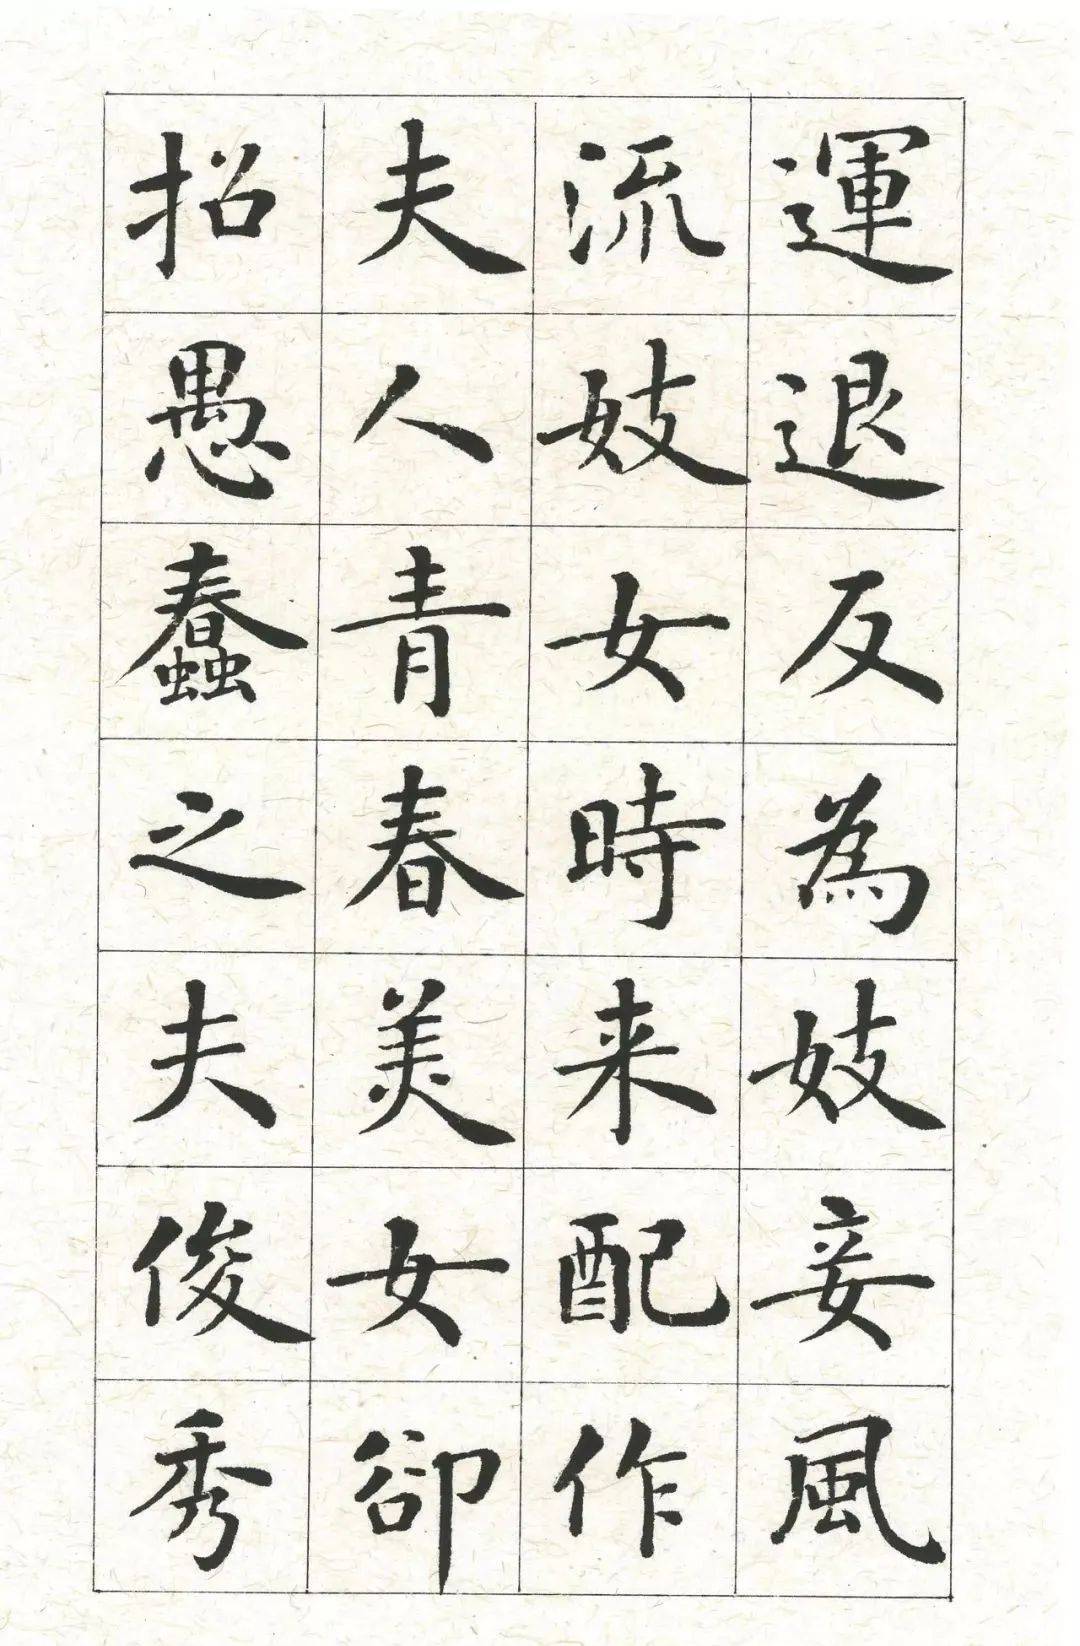 運退反為妓妾風
流妓女時来配作
夫人青春美女卻
招愚蠢之夫俊秀